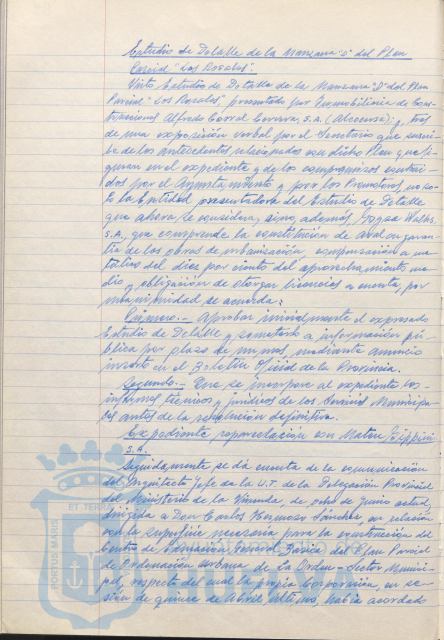 Estudio de Detalle de la Manzana "D" del Plan
Parcial "Los Rosales".
Visto Estudio de Detalle de la Manzana "D" del Plan
Parcial "Los Rosales", presentado por Inmobiliaria de Cons-
trucciones Alfredo Corral Cervera, S.A. (Alcocesa); y tras
de una exposición verbal por el Secretario que suscri-
be de los antecedentes relacionados con dicho Plan y que fi-
guran en el expediente y de los compromisos contraí-
dos por el Ayuntamiento y por los Promotores, no so-
lo la Entidad presentadora del Estudio de Detalle
que ahora se considera, sino, además,
S.A., que comprende la constitución de aval en garan-
tía de las obras de urbanización, compensación a me-
tálico del diez por ciento del aprovechamiento me-
dio y obligación de otorgar licencias a cuenta, por
unanimidad se acuerda:
Primero.- Aprobar inicialmente el expresado
Estudio de Detalle y someterlo a información pú-
blica por plazo de un mes, mediante anuncio
inserto en el Boletín Oficial de la Provincia.
Segundo.- Que se incorpore al expediente los
informes técnicos y jurídicos de los Servicios Municipa-
les antes de la resolución definitiva.
Expediente reparcelación con
S.A.
Seguidamente se dá cuenta de la comunicación
del Arquitecto Jefe de la U.T. de la Delegación Provincial
del Ministerio de la Vivienda, de ocho de Junio actual,
dirigida a Don Carlos Hermoso Sánchez, en relación
con la superficie necesaria para la construcción del
Centro de Educación General Básica del Plan Parcial
de Ordenación Urbana de la Orden - Sector Munici-
pal, respecto del cual la propia Corporación, en se-
sión de quince de Abril último, había acordado
PORTUS MARIS ET TERRAE